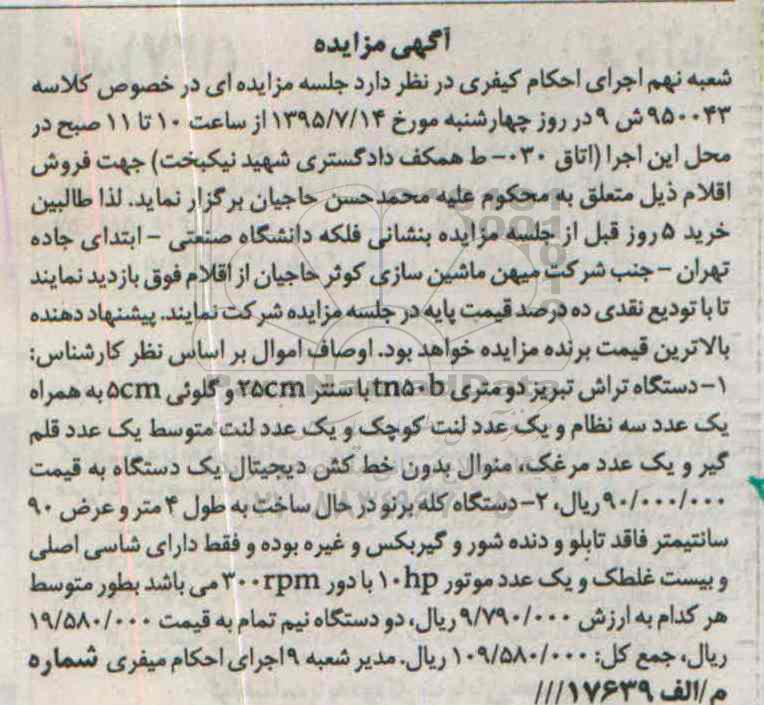 آگهی مزایده
شعبه نهم اجرای احکام کیفری در نظر دارد جلسه مزایده ای در خصوص کلاسه
۹۵۰۰۴۳ ش ۹ در روز چهارشنبه مورخ ۱۳۹۵/۷/۱۴ از ساعت ۱۰ تا ۱۱ صبح در
محل این اجرا (اتاق ۰۳۰- ط همکف دادگستری شهید نیکبخت) جهت فروش
اقلام ذیل متعلق به محکوم علیه محمدحسن حاجیان برگزار نماید. لذا طالبین
خرید ۵ روز قبل از جلسه مزایده بنشانی فلکه دانشگاه صنعتی - ابتدای جاده
تهران - جنب شرکت میهن ماشین سازی کوثر حاجیان از اقلام فوق بازدید نمایند
تا با تودیع نقدی ده درصد قیمت پایه در جلسه مزایده شرکت نمایند. پیشنهاد دهنده
بالاترین قیمت برنده مزایده خواهد بود. اوصاف اموال بر اساس نظر کارشناس:
۱- دستگاه تراش تبریز دو متری tn۵۰b با سنتر ۲۵cm و گلوئی ۵cm به همراه
یک عدد سه نظام و یک عدد لنت کوچک و یک عدد لنت متوسط یک عدد قلم
گیر و یک عدد مرغک، منوال بدون خط کش دیجیتال یک دستگاه به قیمت
۹۰/۰۰۰/۰۰۰ ریال، ۲- دستگاه کله برنو در حال ساخت به طول ۴ متر و عرض ۹۰
سانتیمتر فاقد تابلو و دنده شور و گیربکس و غیره بوده و فقط دارای شاسی اصلی
و بیست غلطک و یک عدد موتور ۱۰hp با دور ۳۰۰rpm می باشد بطور متوسط
هر کدام به ارزش ۹/۷۹۰/۰۰۰ ریال، دو دستگاه نیم تمام به قیمت ۱۹/۵۸۰/۰۰۰
ریال، جمع کل: ۱۰۹/۵۸۰/۰۰۰ ریال. مدیر شعبه ۹ اجرای احکام میفری شماره
م/الف ۱۷۶۳۹///